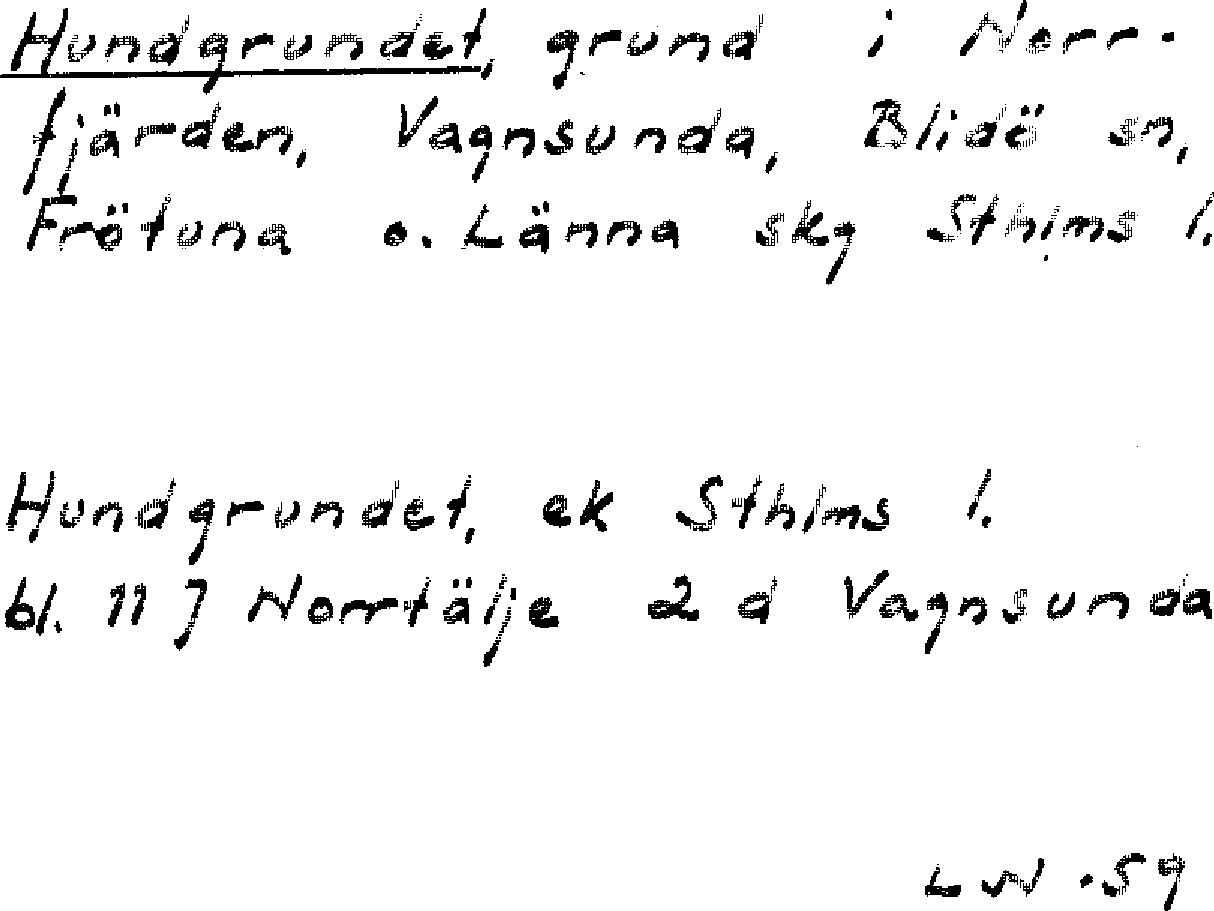 Hundgrundet, grund i Norr-
fjärden, Vagnsunda, Blidö sn,
Frötuna o. Länna sky Sthlms l.
Hundgrundet, ek Sthlms l.
bl. 11 J Norrtälje 2 d Vagnsunda
LW -59